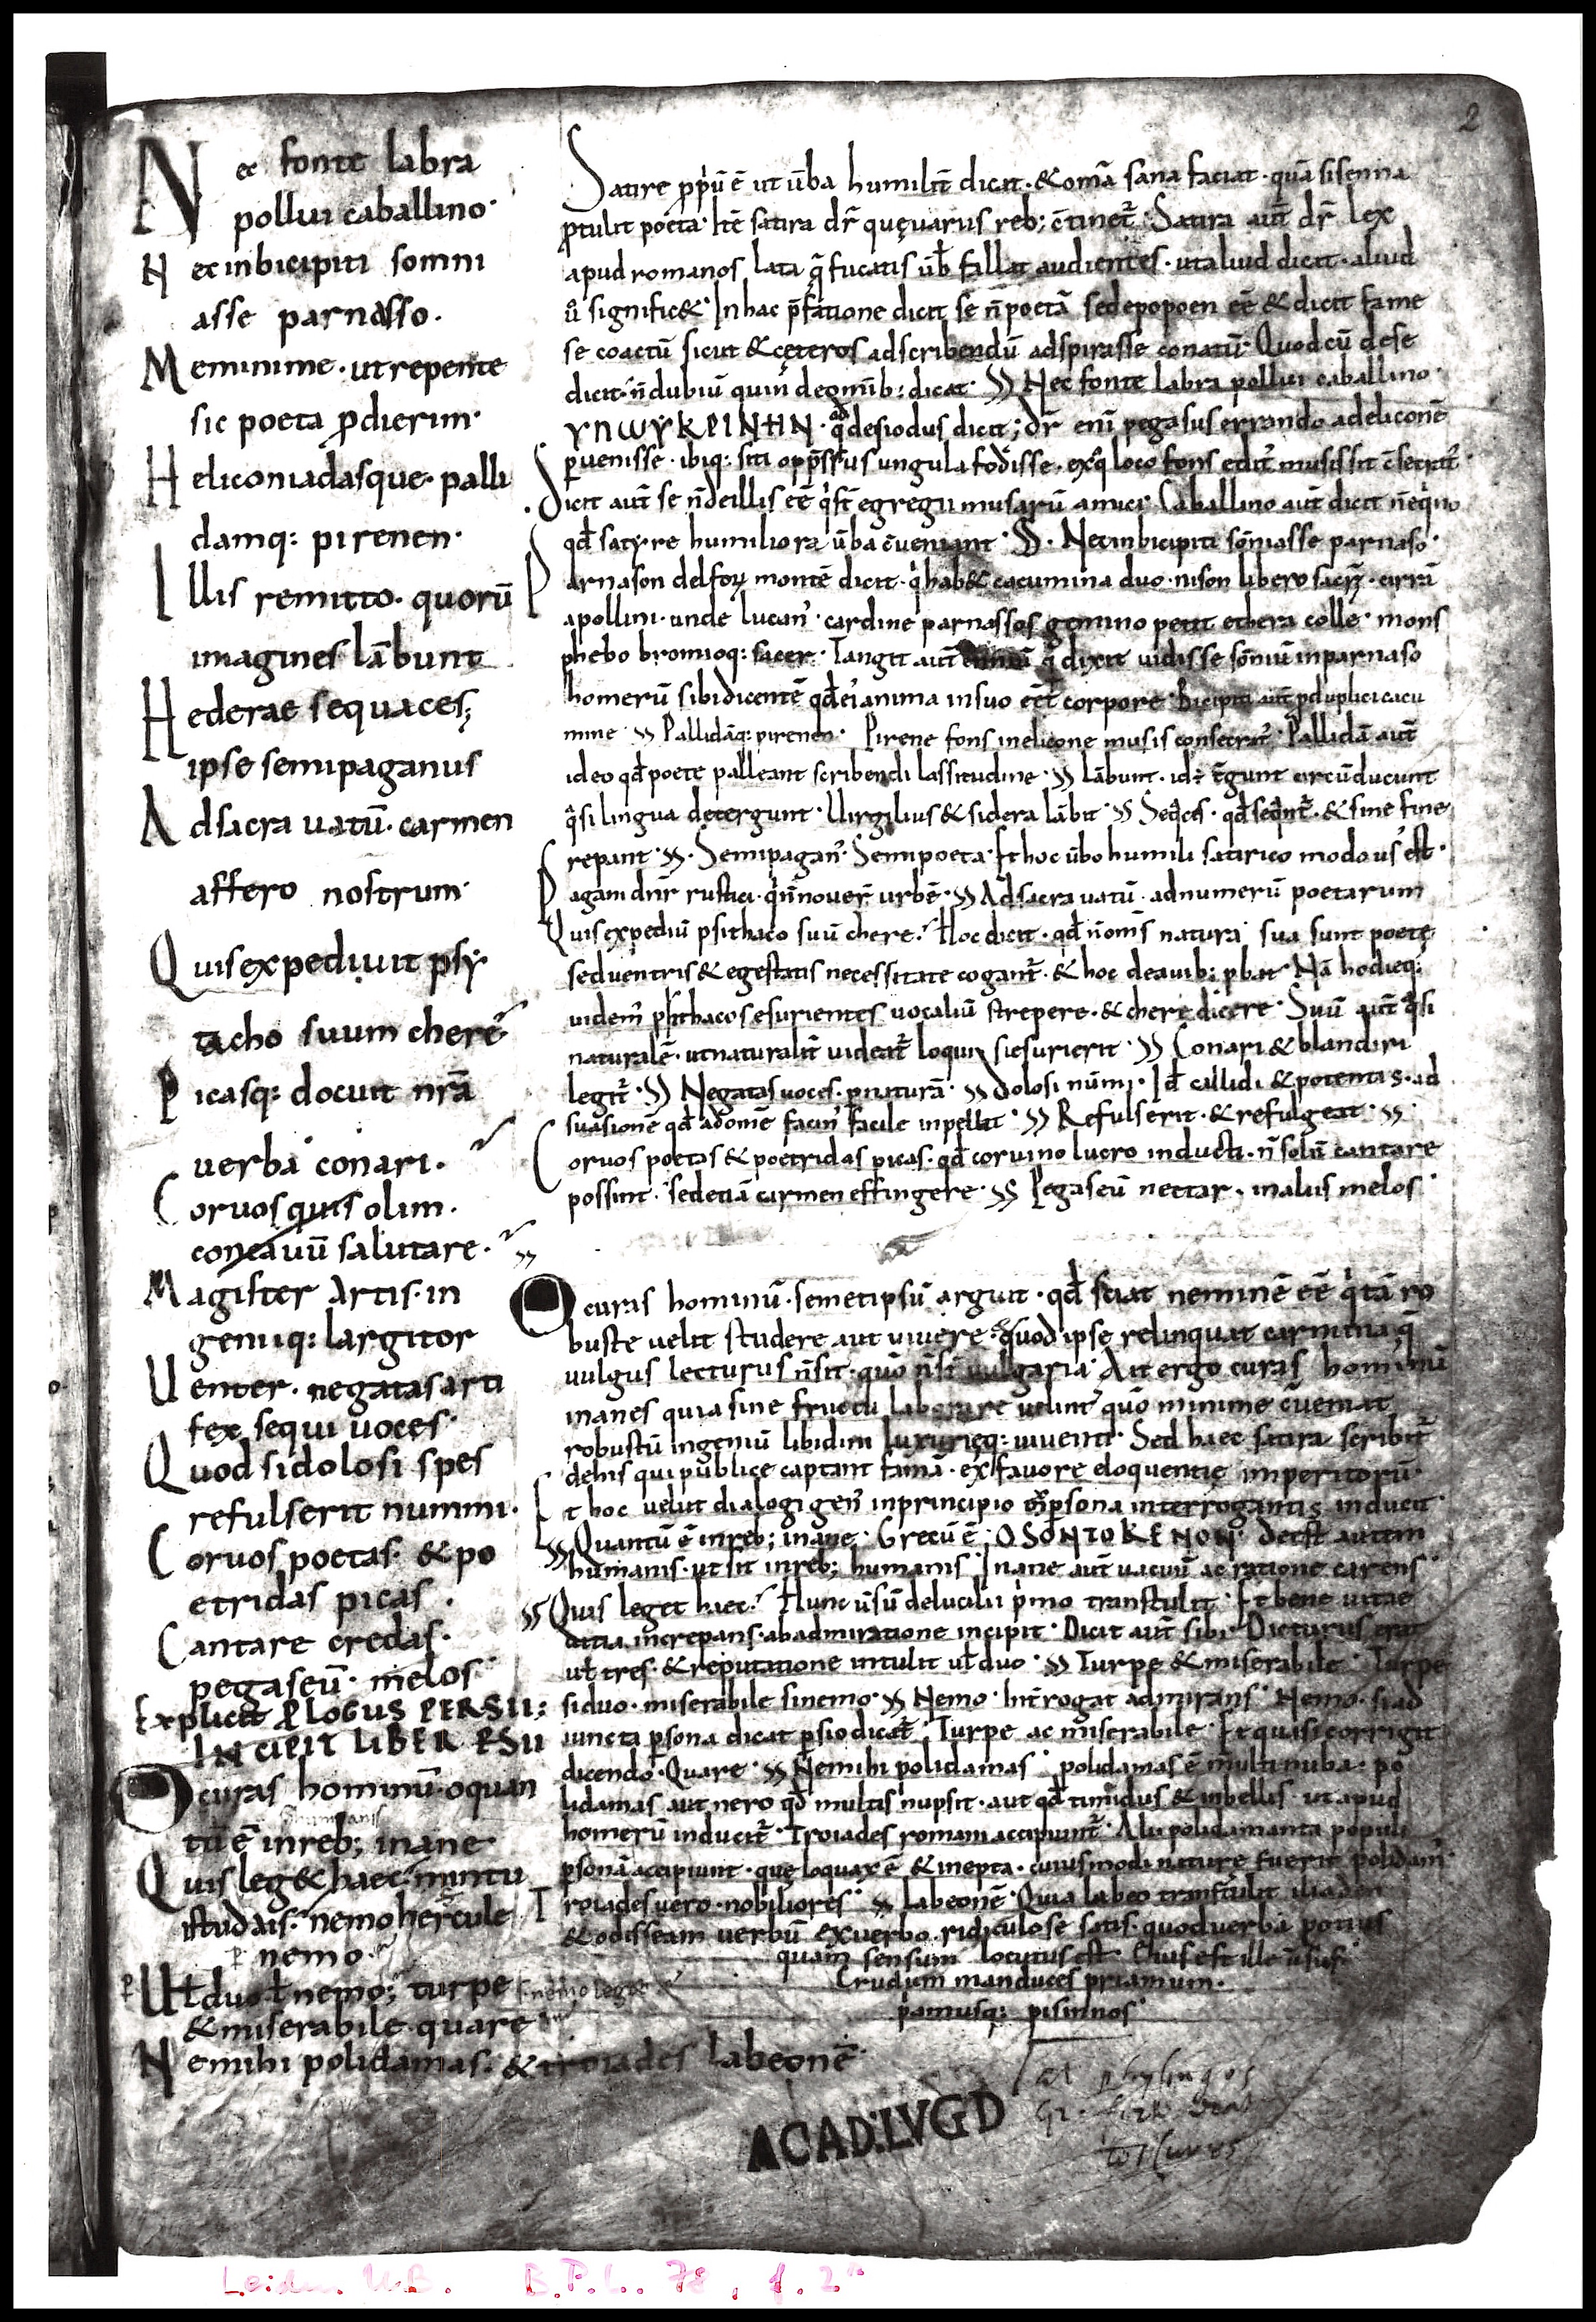 2
Nec fonte labra
pollui caballino·
Nec in bicipiti somni
asse parnasso·
Memini me· ut repente
sic poeta ꝓdierim·
Heliconiadasque· palli
damq: pirenen·
Illis remitto· quorū
imagines lābunt
Hederae sequaces;
ipse semipaganus
Ad sacra uatū· carmen
affero nostrum·
Quis expediuit psy
tacho suum chere·
Picasq: docuit nrā
uerba conari·
Coruos quis olim·
concauū salutare·
Magister artis· in
geniiq: largitor
Uenter· negatas arti
fex sequi uoces·
Quod si dolosi spes
refulserit nummi·
Coruos poetas· & po
etridas picas·
Cantare credas·
pegaseū· melos·
Explicit PLOGUS PERSII;
INCIPIT LIBER PSII
O curas hominū· o quan
tū ē in reb; inane·
Quis leg& haec· min tu
istud ais· nemo hercule
nemo·
Uł duo ł nemo; turpe nemo leget
& miserabile· quare
Ne mihi polidamas· & troiades labeonē·
Satire ꝓpriū ē ut ūba humilit̄ dicat· & omā sana faciat· quā sisenna
ꝓtulit poeta· Itē satira dr̄ quę uarus reb; c̄tinet̄· Satira aut̄ dr̄ lex
apud romanos lata q̄ fucatis ūb fallat audientes· ut aliud dicat· aliud
ū signific&· In hac p̄fatione dicit se n̄ poetā sed epopoen eē & dicit fame
se coactū sicut & cęteros ad scribendū adspirasse conatū· Quod cū de se
dicit· n̄ dubiū quin de omīb; dicat· Nec fonte labra pollui caballino·
ΥΠΩΥΚΡΙΝΗΝ· qđ desiodus dicit; dr̄ enī pegasus errando ad eliconē
puenisse· ibiq: siti opp̄ssus ungula fodisse· ex q̄ loco fons edit̄ musis sit c̄secrat̄·
Dicit aut̄ se n̄ de illis eē q̄ s̄t egregii musarū amici· Caballino aut̄ dicit n̄ eq̄no
qđ satyre humiliora ūba c̄ueniant· Nec in bicipiti sōniasse parnaso·
Parnason delfoꝝ montē dicit· q̄ hab& cacumina duo· nison libero sacrū· cirrā
apollini· unde lucan̄· cardine parnassos gemino petit ethera colle· mons
phebo bromioq: sacer· Tangit aut̄ enniū q̄ dixit uidisse sōniū in parnaso
homerū sibi dicentē qđ ei anima in suo eēt corpore· Bicipiti aut̄ ꝓ duplici cacu
mine· Pallidāq: pirenen· Pirene fons in elicone musis consecrat̄· Pallidā aut̄
ideo qđ poete palleant scribendi lassitudine· lābunt· id ÷ tegunt circūducunt
q̄si lingua detergunt· Uirgilius & sidera lābit· Seq̄ces· qđ seq̄nt̄· & sine fine
repant· Semipagan̄· Semipoeta· Et hoc ūbo humili satirico modo us̄ est·
Pagani dnr̄ rustici· q̄ n̄ nouer̄ urbē· Ad sacra uatū· ad numerū poetarum
Quis expediū psithaco suū chere· Hoc dicit· qđ n̄ om̄s natura sua sunt poetę
sed uentris & egestatis necessitate cogant̄· & hoc de auib; ꝓbat· Nā hodieq:
uidem̄ psithacos esurientes uocaliū strepere· & chere dicere· Suū aut̄ q̄si
naturalē· ut naturalit̄ uideat̄ loqui si esurierit· Conari & blandiri
legit̄· Negatas uoces· ꝓ naturā· dolosi nūmi· Id callidi & potentis· ad
suasionē qđ ad omē facin̄ facile inpellat· Refulserit· & refulgeat·
Coruos poetas & poetridas picas· qđ coruino lucro inducti· n̄ solū cantare
possint· sed etiā carmen effingere· Pegaseū nectar· in aliis melos·
O curas hominū· semetipsū arguit· qđ sciat neminē eē q̄ tā ro
buste uelit studere aut uiuere· quod ipse relinquat carmina q̄
uulgus lecturus n̄ sit· quō n̄ s̄t uulgaria· Ait ergo curas hominū
inanes quia sine fructu laborare uelint quō minime c̄ueniat
robustū ingeniū libidini luxurięq: uiuenti· Sed haec satira scribit̄
de his qui publice captant famā· ex fauore eloquentię imperitorū·
Et hoc uelut dialogi gen̄ in principio persona interrogantis inducit·
Quantū ē in reb; inane· Grecū ē· OSONTOKENON· deest autem
humanis· ut sit in reb; humanis· Inane aut̄ uacuū ac ratione carens·
Quis leget haec· Hunc ūsū de lucilii p̄mo transtulit· Et bene uitae
uitia increpans· ab admiratione incipit· Dicit aut̄ sibi· Dicturus erat
uł tres· & reputatione intulit uł duo· Turpe & miserabile· Turpe
si duo· miserabile si nemo· Nemo· Int̄rogat admirans· Nemo· si ad
iuncta psona dicat psio dicat̄· Turpe ac miserabile· Et quasi corrigit
dicendo· Quare· Ne mihi polidamas· polidamas ē multinuba· po
lidamas aut nero qđ multis nupsit· aut qđ timidus & inbellis· ut apud
homerū inducit̄· Troiades romani accipiunt̄· Alii polidamanta populi
psonā accipiunt· quę loquax ē & inepta· cuiusmodi nature fuerit polidam̄·
Troiades uero· nobiliores· labeonē· Quia labeo transtulit iliaden
& odisseam uerbū ex uerbo· ridiculose satis· quod uerba potius
quam sensum locutus est· Eius est ille ūsus·
Crudum manduces priamum·
pamusq: pisinnos·
ACAD:LVGD
Leiden U.B. B.P.L. 78, f. 2r